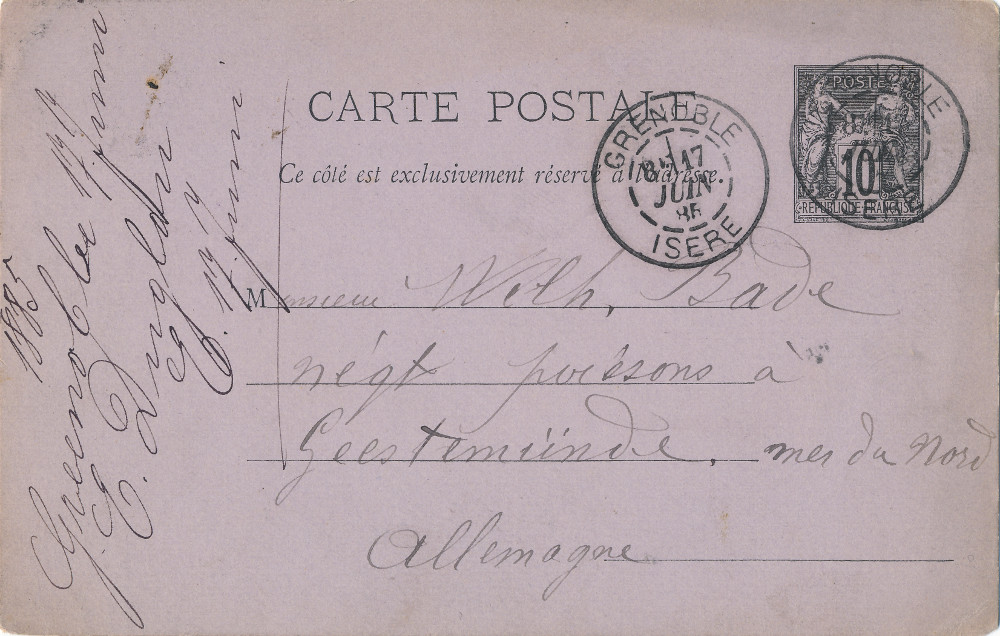 CARTE POSTALE
Ce côté est exclusivement réservé à l'adresse.
POSTE
10
REPUBLIQUE FRANÇAISE
GRENOBLE
17
JUIN
85
ISERE
Monsieur Wilh. Bade
négt poissons à
Geestemünde, mer du Nord
Allemagne
1885
Grenoble 17 juin
E.
E. 17 juin